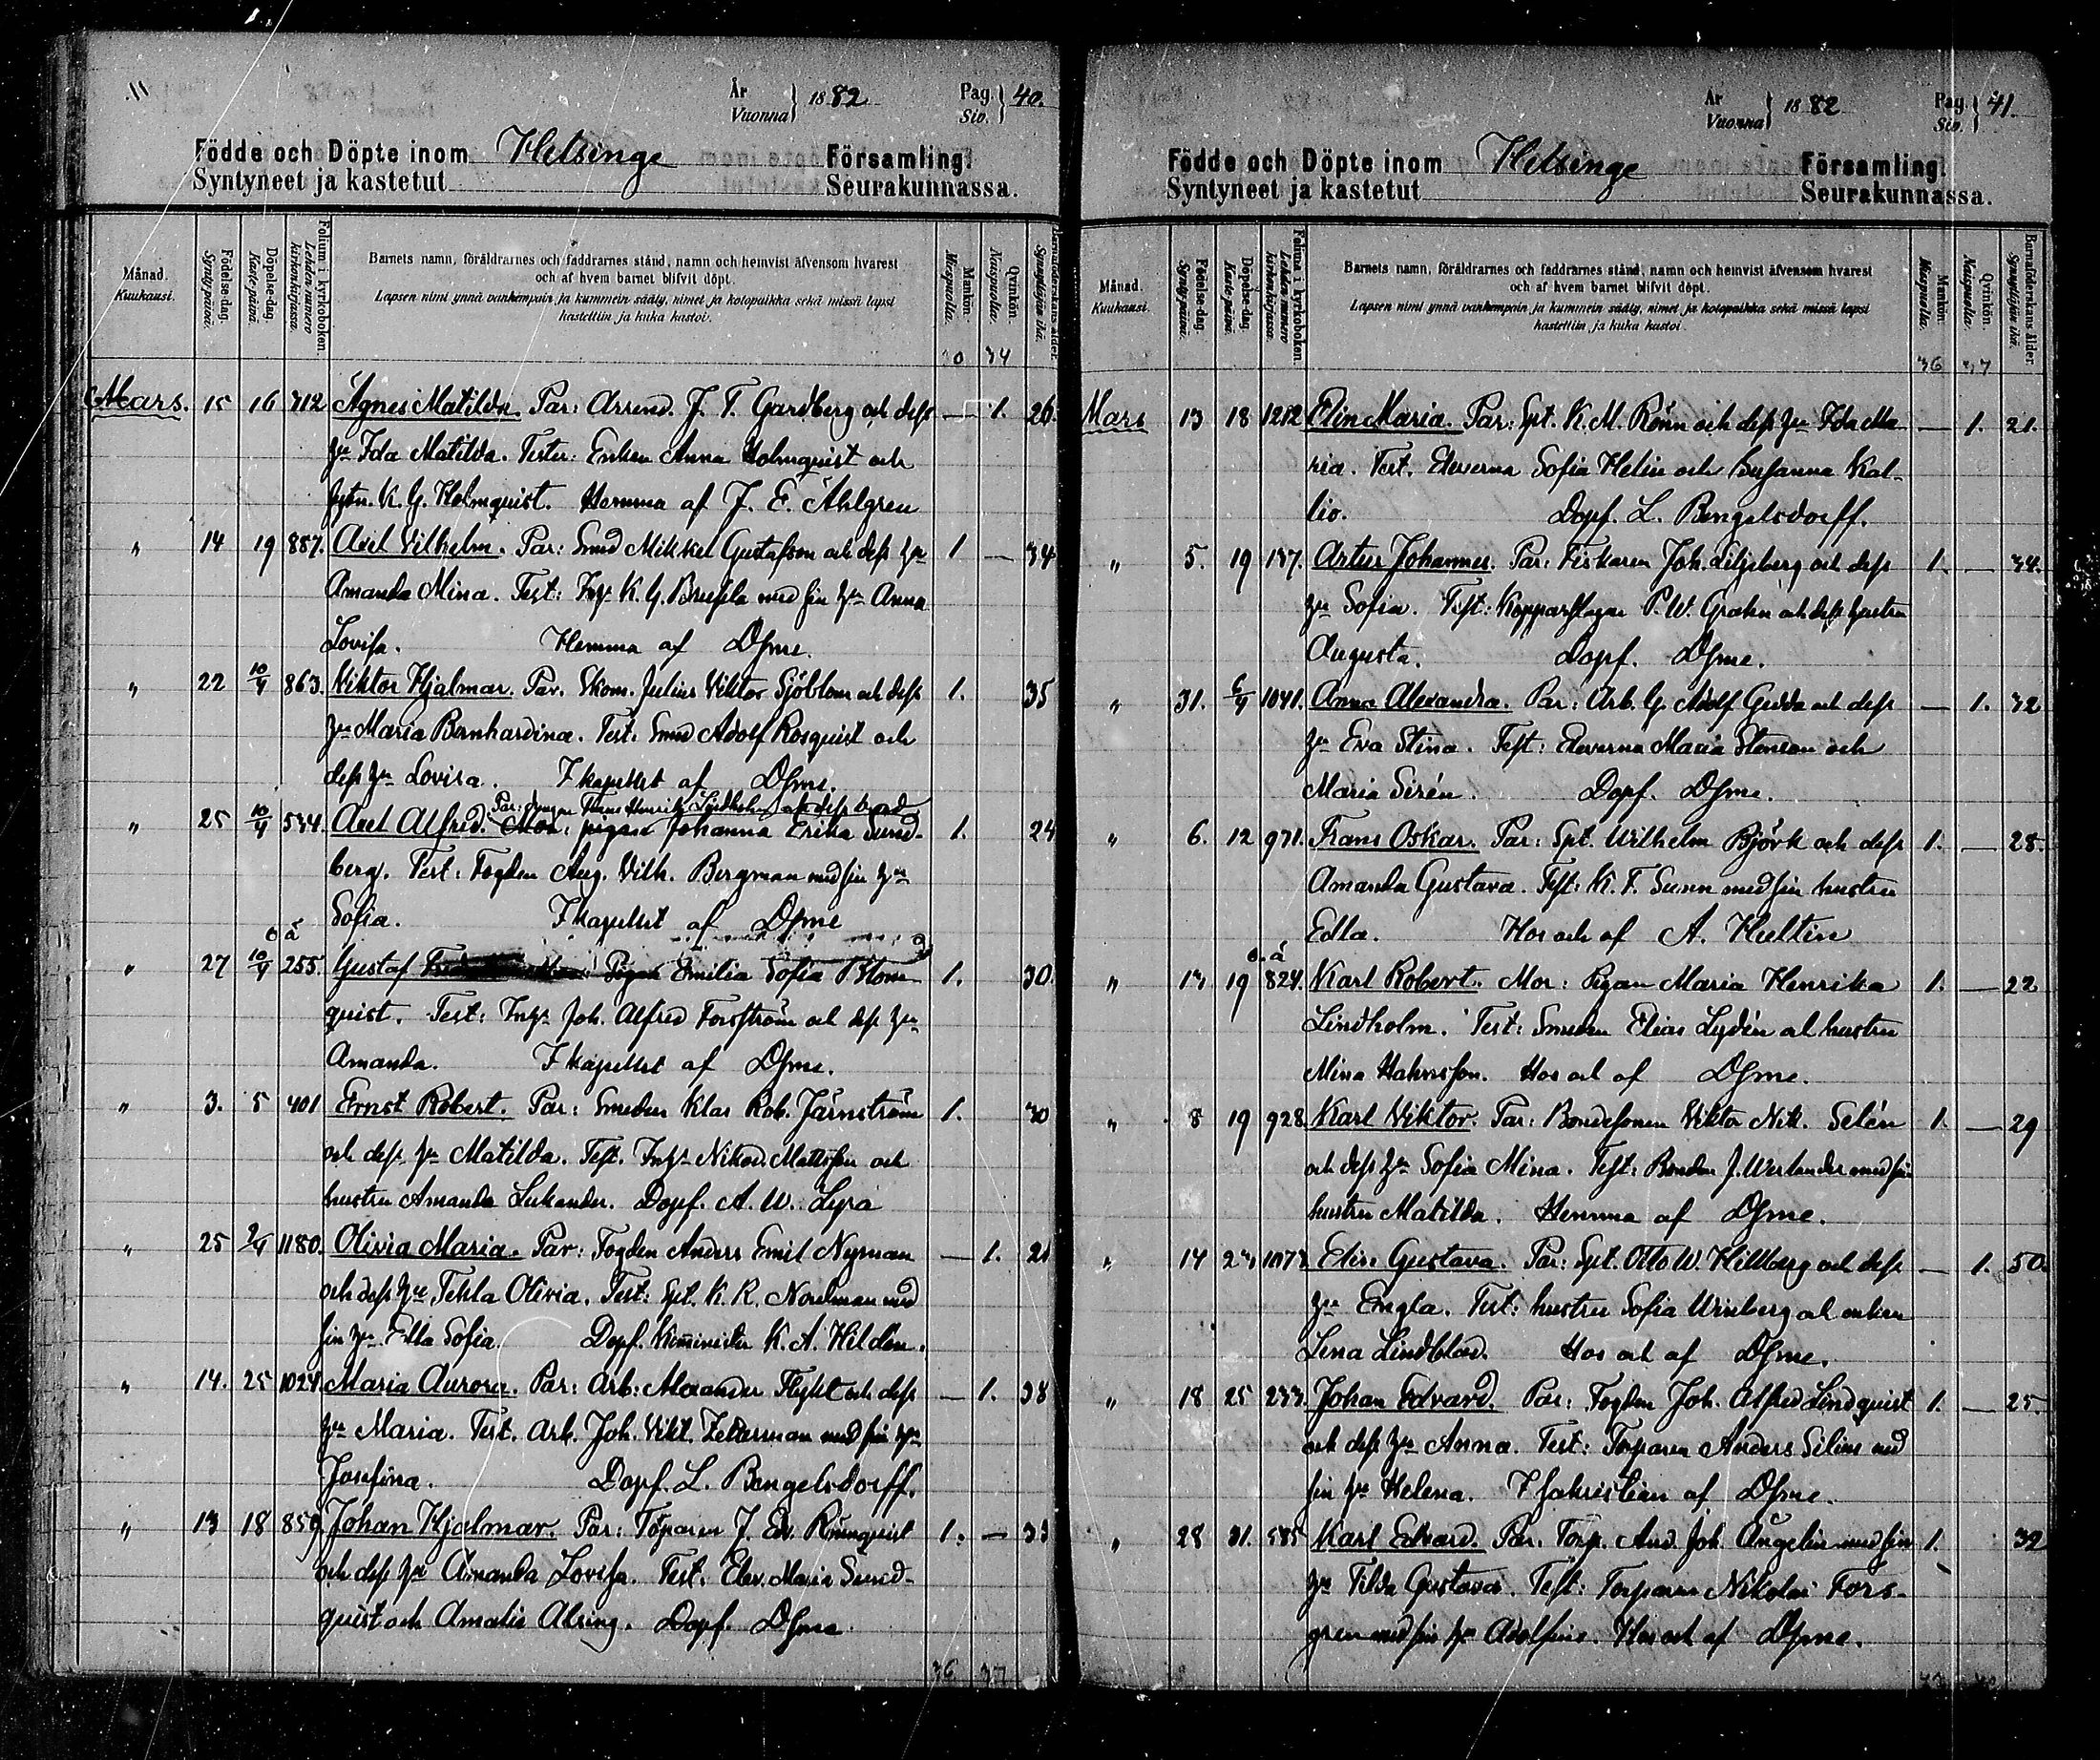 År Vuonna 1882 Pag. Siv. 40.
Födde och Döpte inom Helsinge Församling.
Syntyneet ja kastetut Seurakunnassa.
Månad. Kuukausi.
Födelse-dag. Synty-päivä.
Döpelse-dag. Kaste-päivä.
Folium i kyrkoboken. Lehden numero kirkonkirjassa.
Barnets namn, föräldrarnes och faddrarnes stånd, namn och hemvist äfvensom hvarest
och af hvem barnet blifvit döpt.
Lapsen nimi ynnä vanhempain ja kummein sääty, nimet ja kotopaikka sekä missä lapsi
kastettiin ja kuka kastoi.
Mankön. Miespuolia.
Qvinkön. Naispuolia.
Barnaföderskans ålder. Synnyttäjän ikä.
30 34
Mars. 15 16 312 Agnes Matilda. Par: Arrend. J. T. Gardberg och dess — 1. 26.
hu Ida Matilda. Test: Enkan Anna Holmquist och
K. G. Holmquist. Hemma af J. E. Åhlgren
" 14 19 887. Axel Vilhelm. Par: Smed Mikkel Gustafson och dess hu 1 — 34
Amanda Mina. Test: K. G. med sin hu Anna
Lovisa. Hemma af Dsme.
" 22 10/4 863. Viktor Hjalmar. Par. Skom. Julius Viktor Sjöblom och dess 1. 35
hu Maria Bernhardina. Test: Smed Adolf Rosquist och
dess hu Lovisa. I kapellet af Dsme.
Par: drengen Frans Henrik Lindholm och dess brud
" 25 10/4 534. Axel Alfred. Mor: pigan Johanna Erika Sund- 1. 24
berg. Test: Fogden Aug. Vilh. Bergman med sin hu
Sofia. I kapellet af Dsme
o ä
" 27 10/4 255. Gustaf Pigan Emilia Sofia Blom- 1. 30.
quist. Test: Inhs Joh. Alfred Forsström och dess hu
Amanda. I kapellet af Dsme.
" 3. 5 401 Ernst Robert. Par: Smeden Klas Rob. Järnström 1. 30
och dess hu Matilda. Test. Inhs Nikod. Mattsson och
hustru Amanda Lukander. Dopf. A. W. Lyra
" 25 2/4 1180. Olivia Maria. Par: Fogden Anders Emil Nyman — 1. 21
och dess hu Tekla Olivia. Test: Spt. K. R. Nordman med
sin hu Edla Sofia. Dopf. Kommini K. A. Hildén.
" 14. 25 1024. Maria Aurora. Par: Arb: Alexander Flykt och dess — 1. 38
hu Maria. Test. Arb. Joh. Vikt. Zetterman med sin hu
Josefina. Dopf. L. Bengelsdorff.
" 13 18 859 Johan Hjalmar. Par: Torparen J. Edv. Rönnquist 1. — 33
och dess hu Amanda Lovisa. Test: Elev. Maria Sund-
quist och Amalie Alsing. Dopf. Dsme
36 37
År Vuonna 1882 Pag. Siv. 41.
Födde och Döpte inom Helsinge Församling.
Syntyneet ja kastetut Seurakunnassa.
Månad. Kuukausi.
Födelse-dag. Synty-päivä.
Döpelse-dag. Kaste-päivä.
Folium i kyrkoboken. Lehden numero kirkonkirjassa.
Barnets namn, föräldrarnes och faddrarnes stånd, namn och hemvist äfvensom hvarest
och af hvem barnet blifvit döpt.
Lapsen nimi ynnä vanhempain ja kummein sääty, nimet ja kotopaikka sekä missä lapsi
kastettiin ja kuka kastoi.
Mankön. Miespuolia.
Qvinkön. Naispuolia.
Barnaföderskans ålder. Synnyttäjän ikä.
36 37
Mars 13 18 1212 Elin Maria. Par: Spt. K. M. Rönn och dess hu Ida Ma- — 1. 21.
ria. Test. Eleverna Sofia Helin och Susanna Kal-
lio. Dopf. L. Bengelsdorff.
" 5. 19 137. Artur Johannes. Par: Fiskaren Joh. Liljeberg och dess 1. — 34.
hu Sofia. Test: Kopparslagar P. W. Grahn och dess hustru
Augusta. Dopf. Dsme.
" 31. 6/4 1041. Anna Alexandra. Par: Arb. G. Adolf Gedda och dess — 1. 32
hu Eva Stina. Test: Eleverna Maria Stenson och
Maria Sirén. Dopf. Dsme.
" 6. 12 971. Frans Oskar. Par: Spt. Wilhelm Björk och dess 1. — 28.
Amanda Gustava. Test: K. F. Sunn med sin hustru
Edla. Hos och af A. Hultin
o. ä
" 13 19 824. Karl Robert. Mor: Pigan Maria Henrika 1. — 22.
Lindholm. Test: Smeden Elias Lydén och hustru
Mina Hahnsson. Hos och af Dsme.
" 8 19 928. Karl Viktor. Par: Bondesonen Viktor Nik. Selén 1. — 29
och dess hu Sofia Mina. Test: Bonden J. Werlander med sin
hustru Matilda. Hemma af Dsme.
" 14 23 1073 Elin Gustava. Par: Spt. Otto W. Hillberg och dess — 1. 50.
hu Engla. Test: hustru Sofia Winberg och enkan
Lena Lindblad. Hos och af Dsme.
" 18 25 233. Johan Edvard. Par: Fogden Joh. Alfred Lindquist 1. — 25.
och dess hu Anna. Test: Torparen Anders Silins med
sin hu Helena. I sakristian af Dsme.
" 28 31. 585 Karl Edvard. Par. Torp. And. Joh. Ångelin med sin 1. 32
hu Tilda Gustava. Test: Torparen Nikolai Fors-
gren med sin hu Adolfina. Hos och af Dsme.